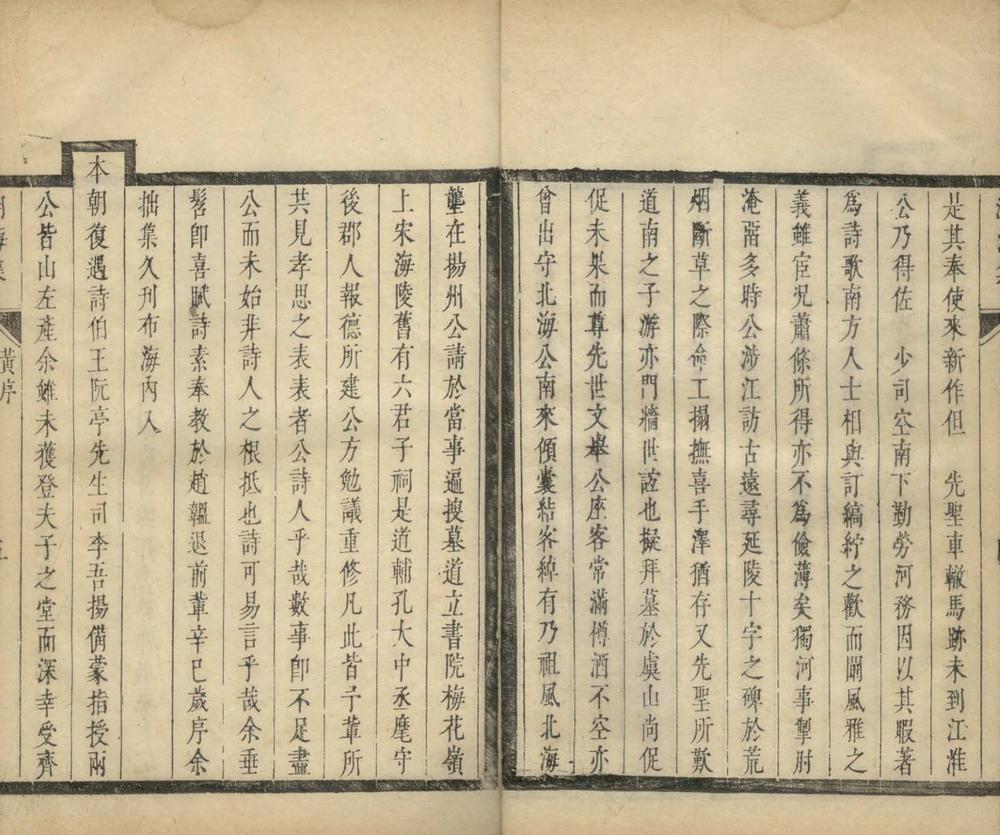 是其奉使來新作但　先聖車轍馬跡未到江淮
公乃得佐　少司空南下勤勞河務因以其暇著
為詩歌南方人士相與訂縞紵之歡而闢風雅之
義雖宦况蕭條所得亦不為儉薄矣獨河事掣肘
淹畱多時公涉江訪古遠尋延陵十字之碑於荒
烟斷草之際命工搨撫喜手澤猶存又先聖所歎
道南之子游亦門牆世誼也擬拜墓於虞山尚促
促未果而尊先世文舉公座客常滿樽酒不空亦
曾出守北海公南來傾囊結客綽有乃祖風北海
壟在揚州公請於當事遍搜墓道立書院梅花嶺
上宋海陵舊有六君子祠是道輔孔大中丞麾守
後郡人報德所建公方勉議重修凡此皆予輩所
共見孝思之表表者公詩人乎哉數事卽不足盡
公而未始非詩人之根柢也詩可易言乎哉余垂
髫卽喜賦詩素奉教於趙韞退前輩辛巳歲序余
拙集久刋布海內入
本朝復遇詩伯王阮亭先生司李吾揚備蒙指授兩
公皆山左產余雖未獲登夫子之堂而深幸受齊
湖海集
黃序